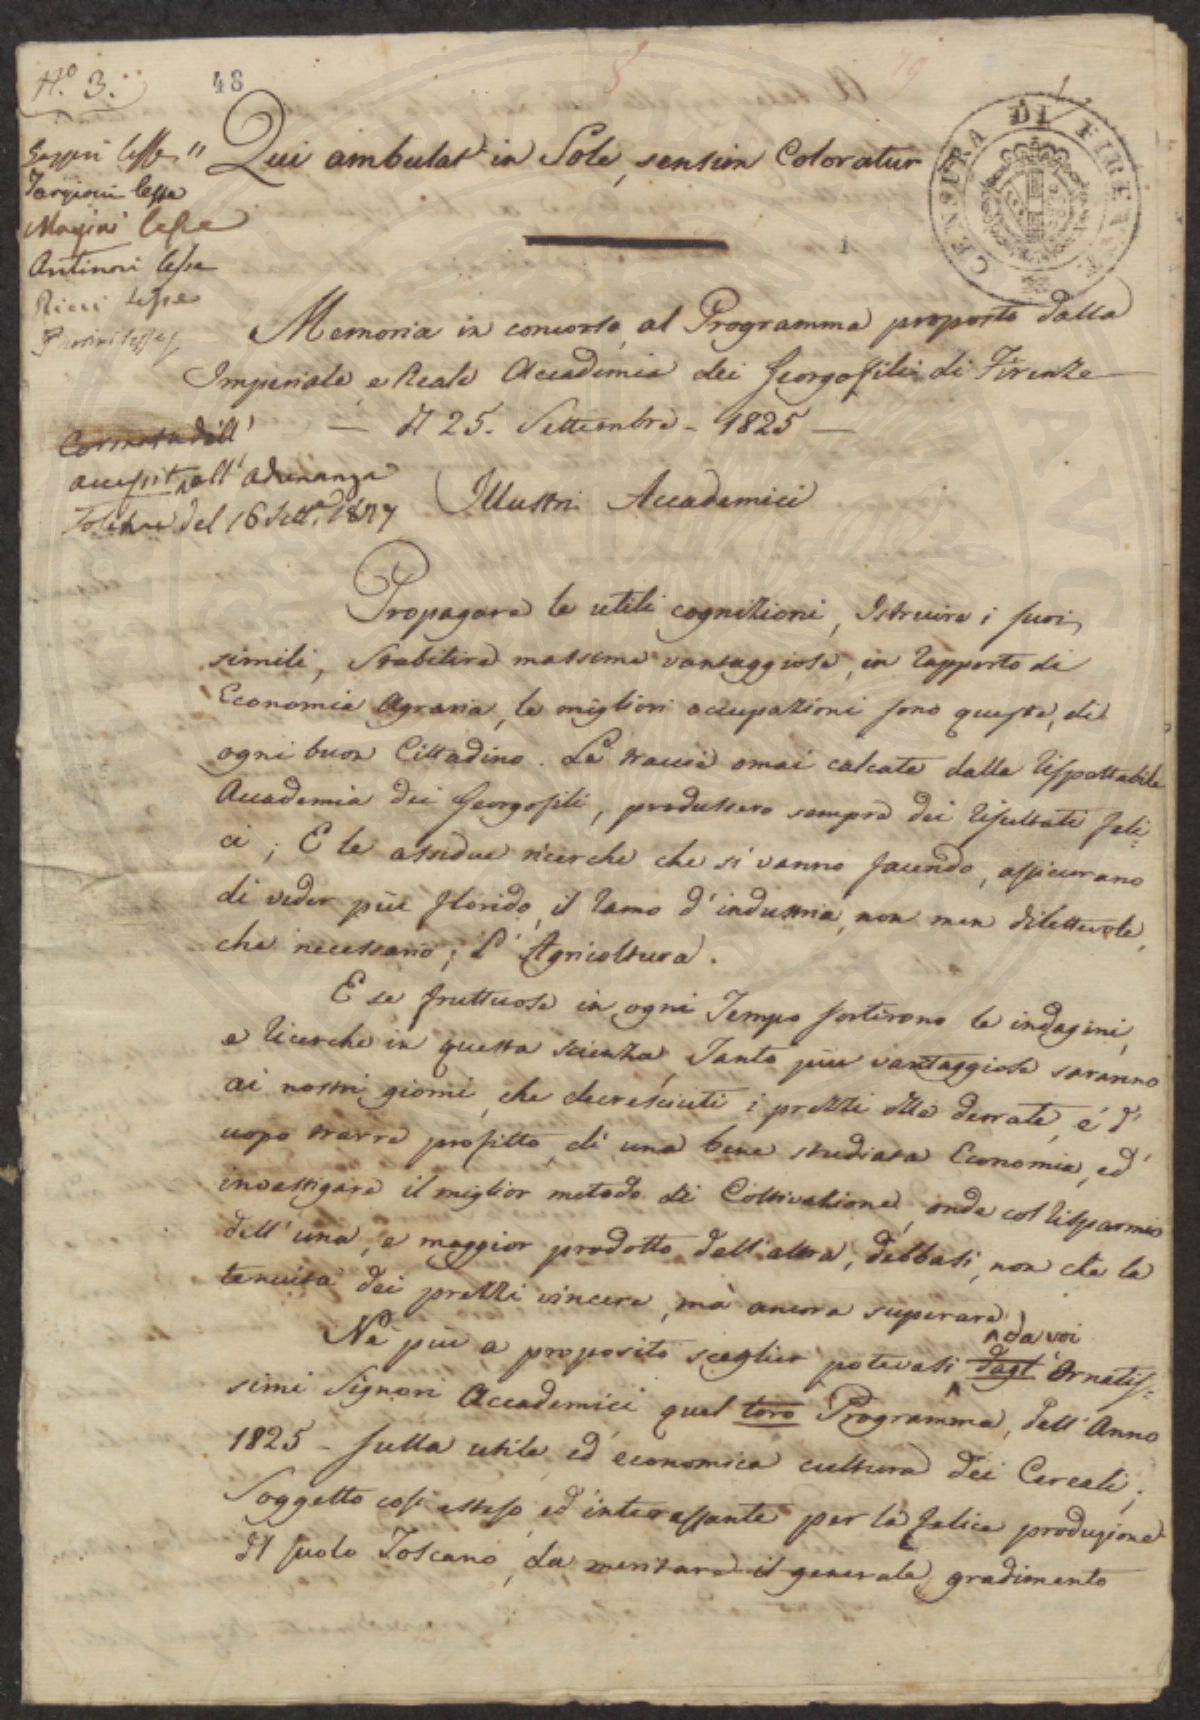 N.º 3.
48
Gazzeri lesse "
Targioni lesse
Magini lesse
Antinori lesse
Ricci lesse
Qui ambulat in Sole, sensim Coloratur
CENSURA DI FIRENZE
Memoria in concorso, al Programma proposto dalla
Imperiale, e Reale Accademia dei Georgofili di Firenze
— Il 25. Settembre - 1825 —
accessit, all' adunanza
Solenne del 16 Sett. 1827
Illustri Accademici
Propagare le utili cognizioni, Istruire i suoi
simili, Stabilire massime vantaggiose, in rapporto di
Economia Agraria, le migliori occupazioni sono queste, di
ogni buon Cittadino. Le traccie omai calcate dalla rispettabile
Accademia dei Georgofili, produssero sempre dei risultati feli-
ci; E le assidue ricerche che si vanno facendo, assicurano
di veder più florido, il ramo d'industria, non men dilettevole,
che necessario; L'Agricoltura.
E se fruttuose in ogni Tempo sortirono le indagini,
e ricerche in questa scienza, Tanto più vantaggiose saranno
ai nostri giorni, che decresciuti i prezzi alle derrate, è d'
uopo trarre profitto, di una bene studiata Economia, ed
investigare il miglior metodo di Coltivazione, onde col risparmio
dell'una, e maggior prodotto dell'altra, debbasi, non che la
tenuità dei prezzi vincere, mà ancora superare
da voi
Nè più a proposito sceglier potevasi dagl' Ornatis-
simi Signori Accademici quel loro Programma, dell'Anno
1825 - sulla utile, ed economica cultura dei Cereali;
Soggetto così esteso, ed interessante per la felice produzione
del suolo Toscano, da meritare il generale gradimento